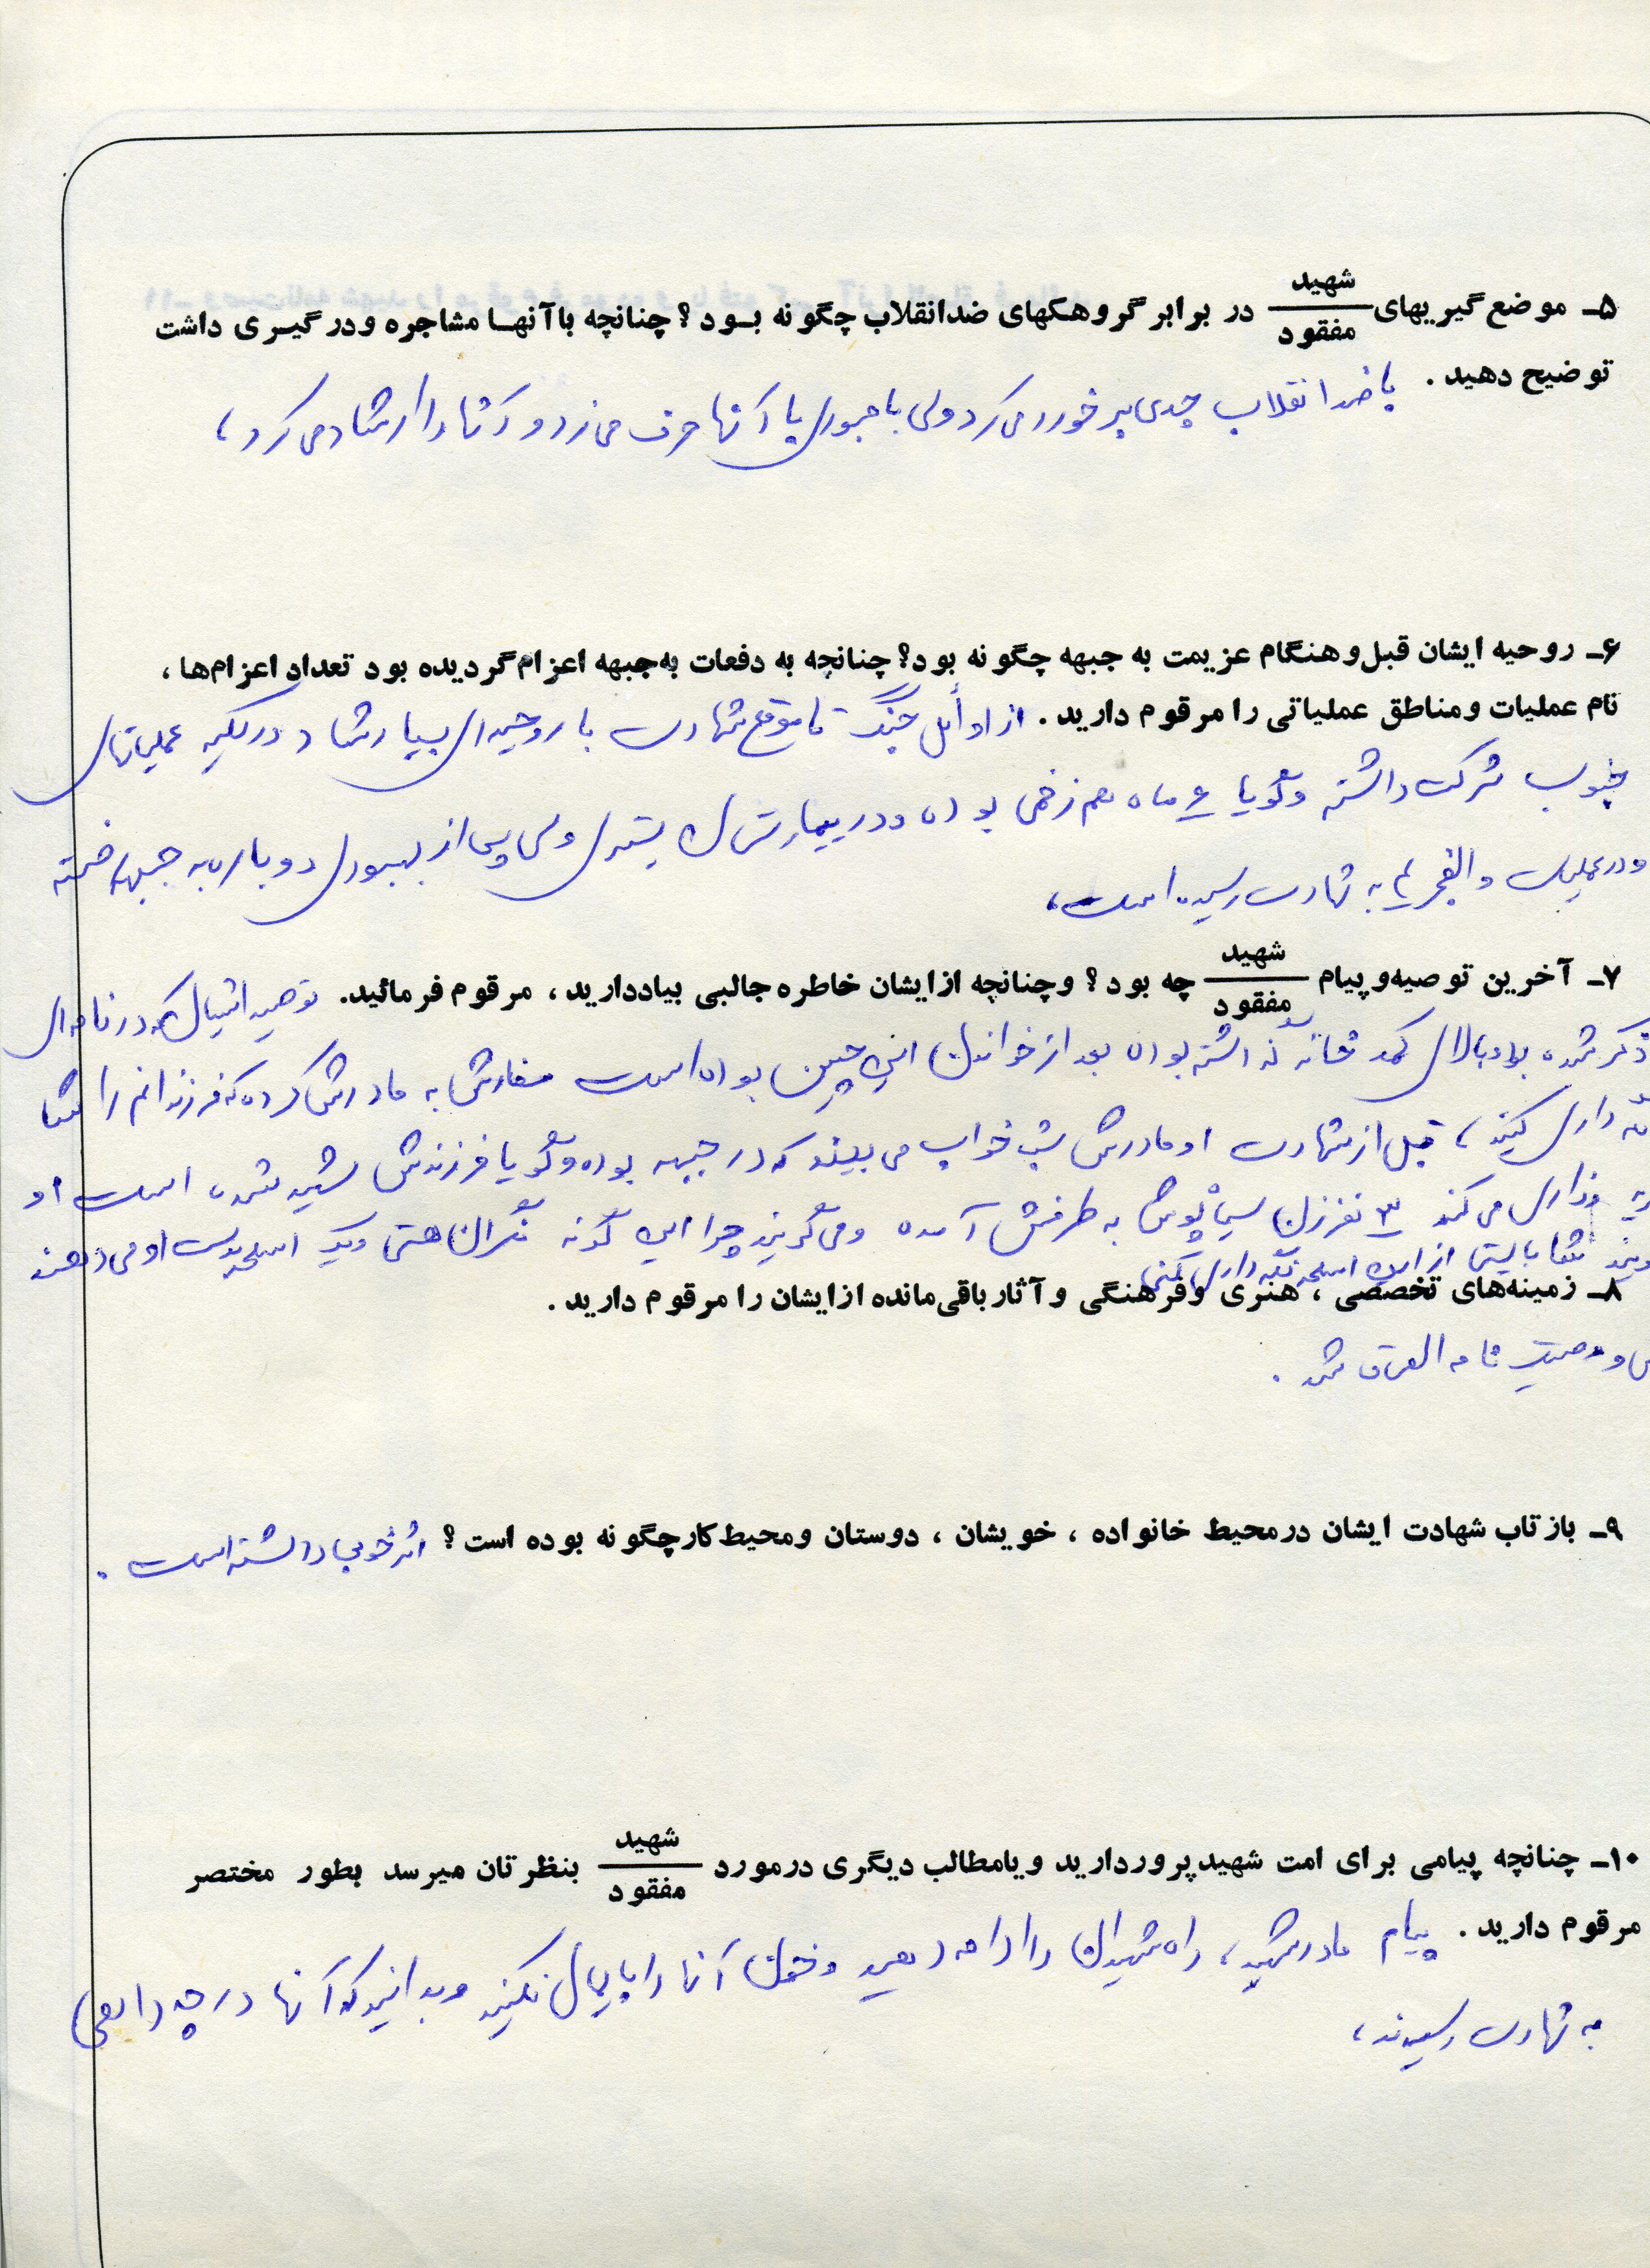 ۵ـ موضع گیریهای شهید/مفقود در برابر گروهکهای ضدانقلاب چگونه بود؟ چنانچه باآنها مشاجره ودرگیری داشت
توضیح دهید. با ضد انقلاب جدی برخورد می کرد ولی با صبوری با آنها حرف می زد و آنها را ارشاد می کرد،
۶ـ روحیه ایشان قبل وهنگام عزیمت به جبهه چگونه بود؟ چنانچه به دفعات به جبهه اعزام گردیده بود تعداد اعزام‌ها،
نام عملیات ومناطق عملیاتی را مرقوم دارید. از اوائل جنگ تا موقع شهادت با روحیه ای بسیار شاد در کلیه عملیاتهای
جنوب شرکت داشته وگویا ۶ ماه هم زخمی بوده ودر بیمارستان بستری ولی پس از بهبودی دوباره به جبهه رفته
ودر عملیات والفجر به شهادت رسیده است،
۷ـ آخرین توصیه وپیام شهید/مفقود چه بود؟ وچنانچه ازایشان خاطره جالبی بیاددارید، مرقوم فرمائید. توصیه ایشان که در نامه ای
ذکر شده بود بالای کمد خانه گذاشته بوده بعد از خواندن این چنین بوده است سفارش به مادرش کرده که فرزندانم را شما
نگه داری کنید، قبل از شهادت او مادرش شب خواب می بیند که در جبهه بوده وگویا فرزندش شهید شده است او
زاری می کند ۳ نفر زن سیاه پوش به طرفش آمده ومی گویند چرا این گونه نگران هستی ویک اسلحه بدست او می دهند
شما بایستی از این اسلحه نگه داری کنی
۸ـ زمینه‌های تخصصی، هنری وفرهنگی وآثار باقی‌مانده ازایشان را مرقوم دارید.
وصیت نامه الصاق شد.
۹ـ بازتاب شهادت ایشان درمحیط خانواده، خویشان، دوستان ومحیط کارچگونه بوده است؟ اثر خوبی داشته است.
۱۰ـ چنانچه پیامی برای امت شهیدپرور دارید ویامطالب دیگری درمورد شهید/مفقود بنظرتان میرسد بطور مختصر
مرقوم دارید. پیام مادر شهید، راه شهیدان را ادامه دهید وخون آنها را پایمال نکنید وبدانید که آنها در چه راهی
به شهادت رسیدند،